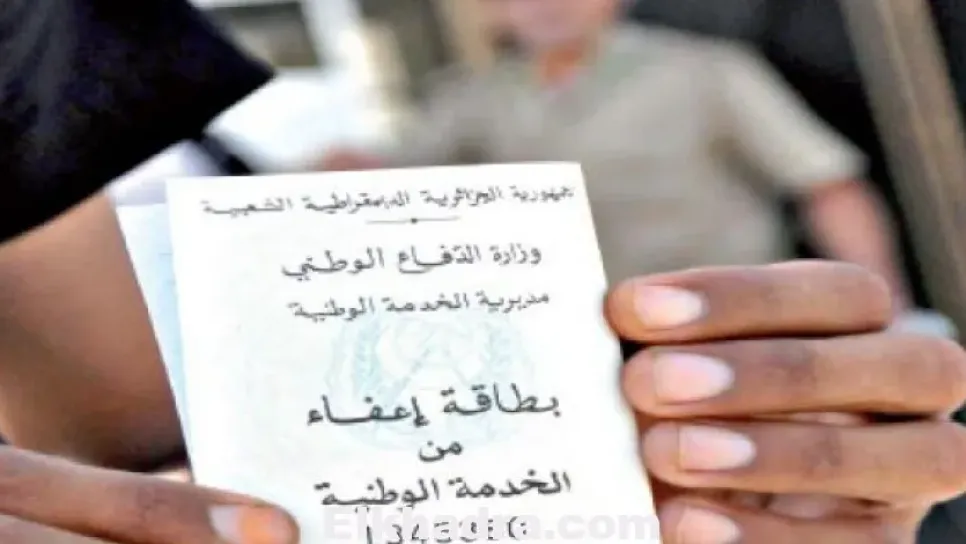 جمهورية الجزائرية الديمقراطية الشعبية
وزارة الدفاع الوطني
مديرية الخدمة الوطنية
بطاقة إعفاء
من
الخدمة الوطنية
Elkhadra.com